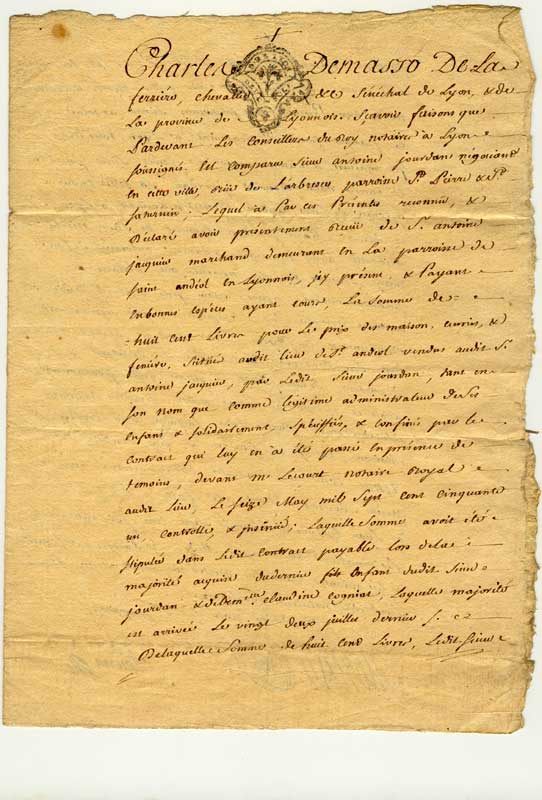 Charles Demasso De La
ferriere, chevallier & Senechal de Lyon, & de
La province de Lyonnois. Scavoir faisons que
Pardevant Les Conseillers du Roy notaire a Lyon
soussignés Est comparu Sieur antoine jourdan négociant
en cette ville, ruë de Larbresec, parroisse St. Pierre & St.
saturnin; Lequel a Par ces Présentes reconnu, &
Déclaré avoir présentement Receu de Sr. antoine
jacquiu marchand demeurant en La parroisse de
saint andéol en Lyonnois, icy présent, & Payant
En bonnes espéces ayant cours, La Somme de
huit cent Livres pour Le prix des maison, ecurie, &
feniere, Situés audit lieu de St. andeol vendus audit Sr.
antoine jacquiu, par Ledit Sieur jourdan, tant en
son nom que comme legitime administrateur de Ses
Enfans & solidairement Spéciffiés, & confinés par le
Contract qui luy en a été passé en présence de
temoins, devant Me Lecourt notaire Royal
audit Lieu, Le Seize May mil Sept Cent Cinquante
un Controllé, & insinué; Laquelle Somme avoit été
stipulée dans Ledit Contract payable lors de la
majorité acquise du dernier Enfant dudit Sieur
jourdan & de claudine cogniat, Laquelle majorité
est arrivée Le vingt deux juillet dernier
Delaquelle Somme de huit Cent Livres, Ledit Sieur